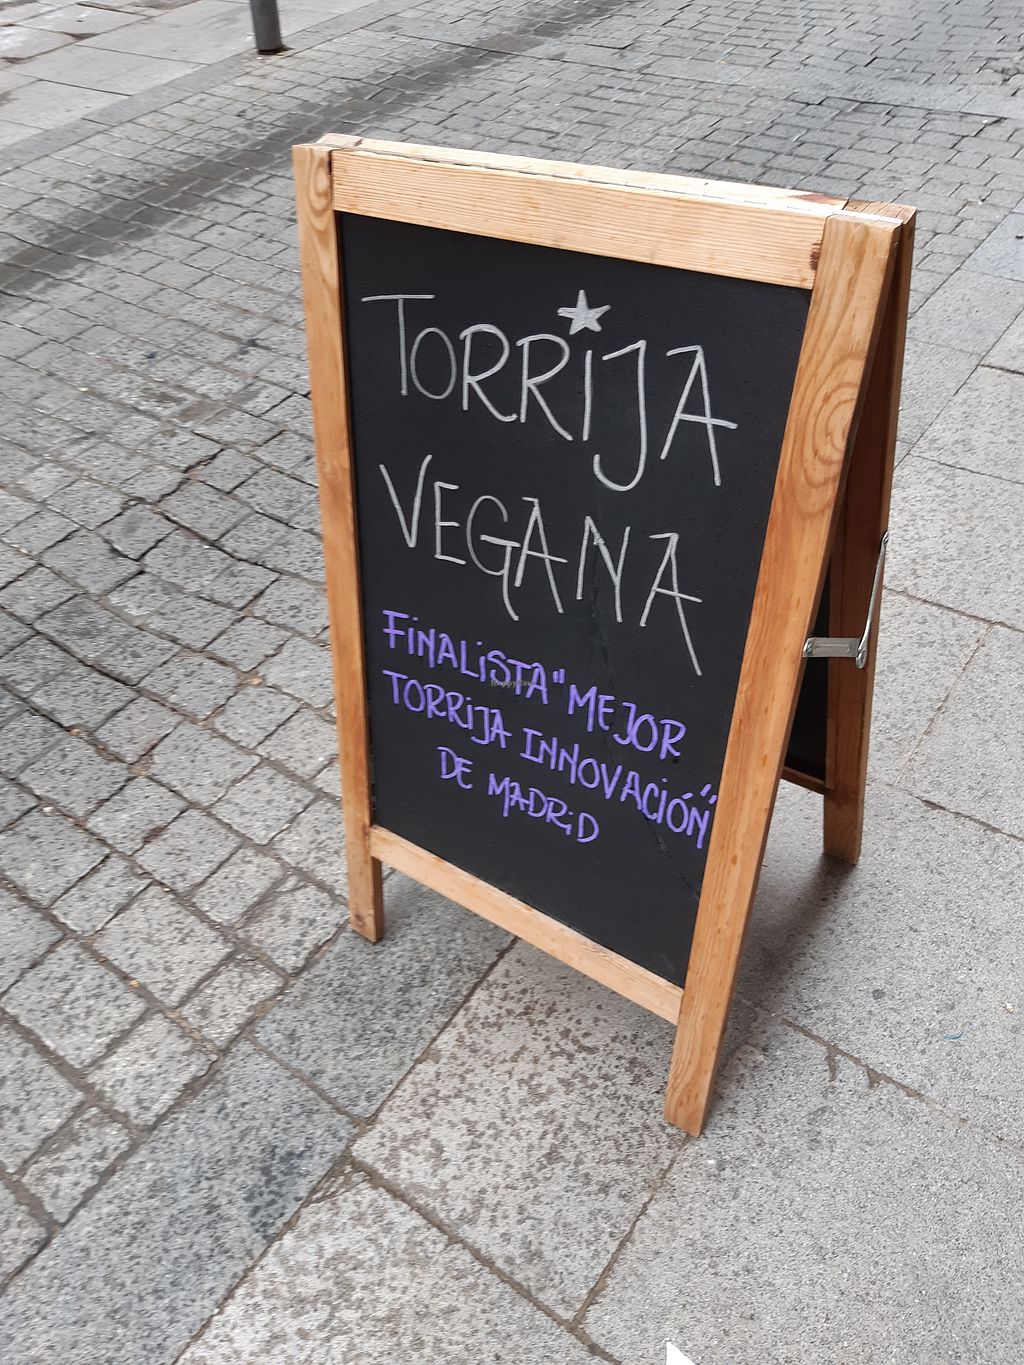 TORRIJA
VEGANA
FINALISTA "MEJOR
TORRIJA INNOVACIÓN"
DE MADRID